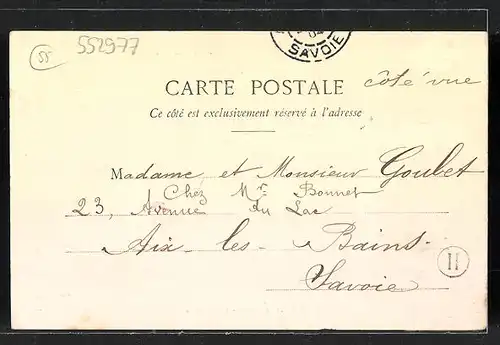 55
552977
04
SAVOIE
CARTE POSTALE
côté vue
Ce côté est exclusivement réservé à l'adresse
Madame et Monsieur Goubet
Chez Mr Bonnet
23, Avenue du Lac
Aix-les-Bains.
Savoie
H